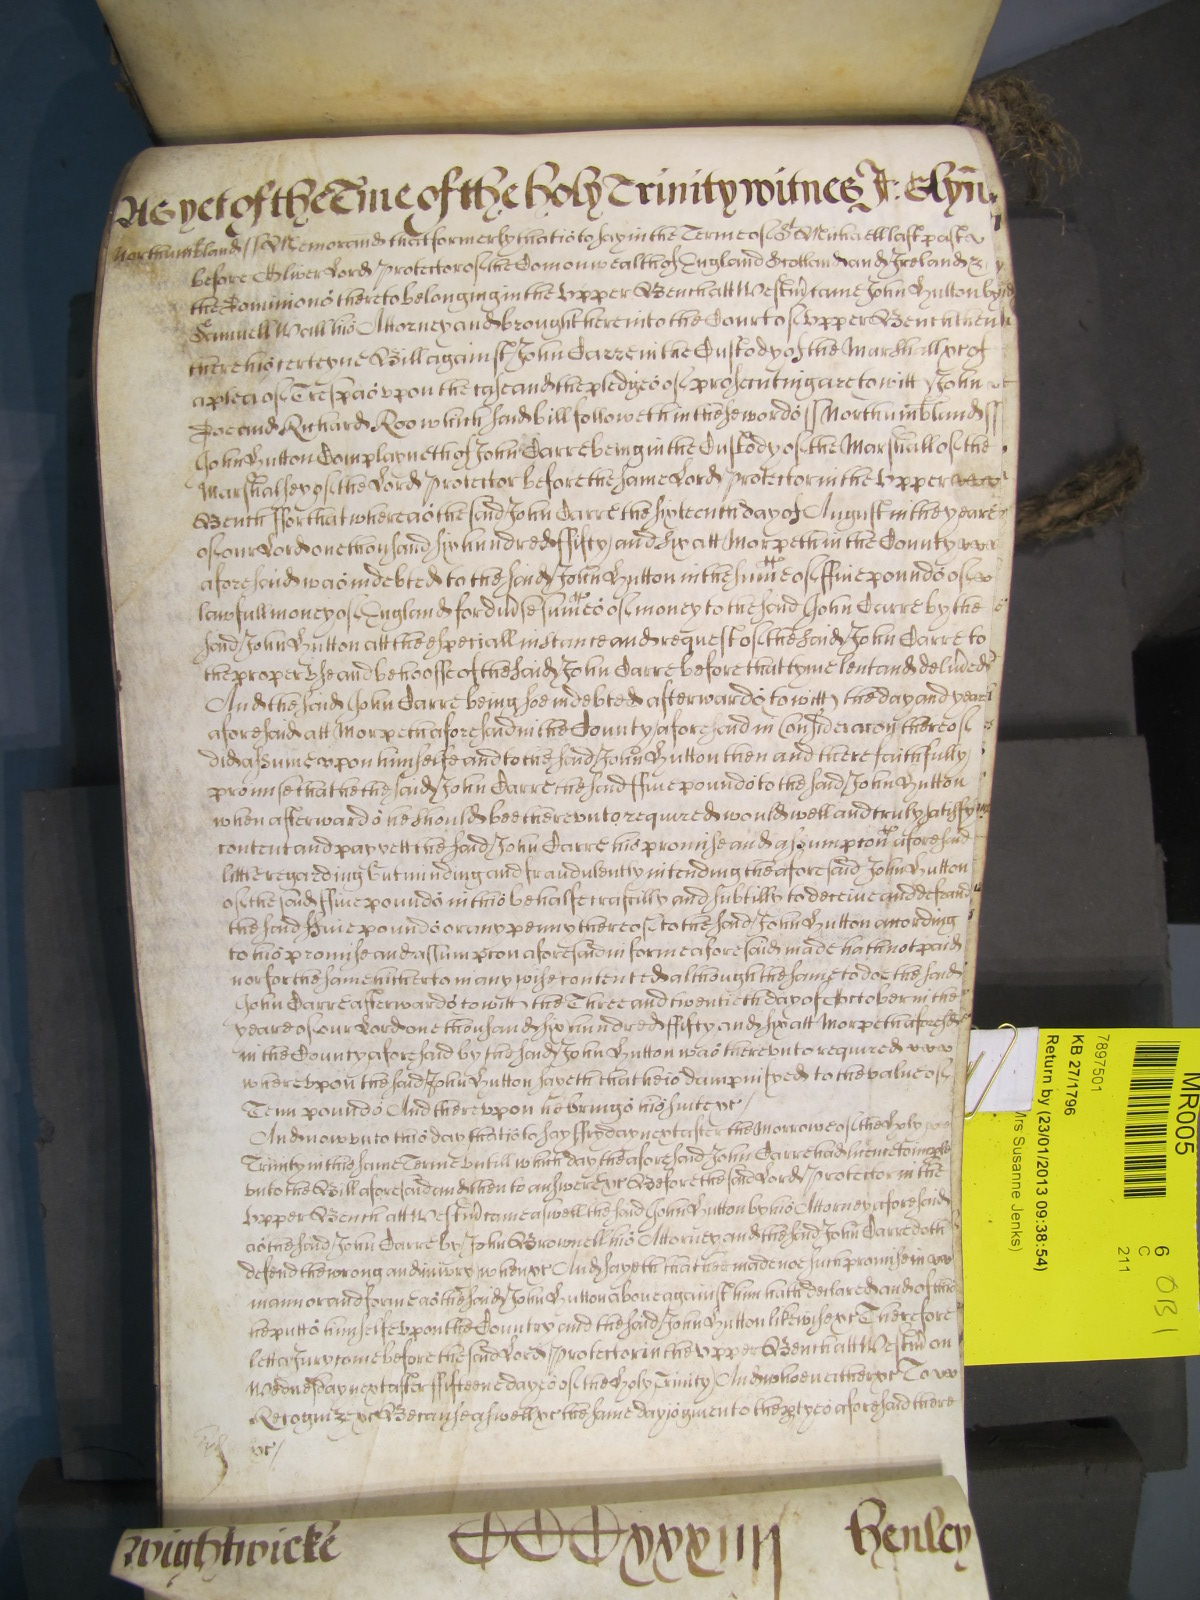 As yet of the Tme of the holy Trinity witnes J: Glyn
Northumbland / ss Memorand that formerly that is to say in the Terme of St Michaell last past
before Oliver Lord Protector of the Comonwealth of England Scotland and Ireland &
the Dominions thereto belonging in the Upper Bench att Westm came John Hutton by
Samuell Wall his Attorney and brought here into the Court of Upper Bench then
there his certeyne Bill against John Carre in the Custody of the Marshall &c of
a plea of Trespas upon the case and the pledges of prosecuting are to witt John
Doe and Richard Roo which said bill followeth in these words ss Northumbland ss
John Hutton Complayneth of John Carre being in the Custody of the Marshall of the
Marshalsey of the Lord Protector before the same Lord Protector in the Upper
Bench ffor that whereas the said John Carre the sixteenth day of August in the yeare
of our Lord one thousand six hundred ffifty and six att Morpeth in the County
aforesaid was indebted to the said John Hutton in the sume of ffive pounds of
lawfull money of England for div'se sumes of money to the said John Carre by the
said John Hutton att the especiall instance and request of the said John Carre to
the proper use and behoofe of the said John Carre before that tyme lent and deliv'ed
And the said John Carre being soe indebted afterwards to witt the day and yeare
aforesaid att Morpeth aforesaid in the County aforesaid in Consideracon thereof
did assume upon himselfe and to the said John Hutton then and there faithfully
promise that he the said John Carre the said ffive pounds to the said John Hutton
when afterwards he should bee thereunto required would well and truly satisfy
content and pay yett the said John Carre his promise and assumpton aforesaid
little regarding but minding and fraudulently intending the aforesaid John Hutton
of the said ffive pounds in this behalfe craftily and subtilly to deceive and defraud
the said ffive pounds or any penny thereof to the said John Hutton according
to his promise and assumpton aforesaid in forme aforesaid made hath not paid
nor for the same hitherto in any wise contented although the same to doe the said
John Carre afterwards to witt the Three and twentieth day of October in the
yeare of our Lord one thousand six hundred ffifty and six att Morpeth aforesaid
in the County aforesaid by the said John Hutton was thereunto required
whereupon the said John Hutton sayeth that he is dampnifyed to the value of
Tenn pounds And thereupon he brings his suite &c /
And now unto this day that is to say ffryday next after the Morrowe of the Holy
Trinity in the same Terme untill which day the aforesaid John Carre had licence to imparle
unto the Bill aforesaid and then to answere &c Before the said Lord Protector in the
Upper Bench att Westm came aswell the said John Hutton by his Attorney aforesaid
as the said John Carre by John Brownell his Attorney and the said John Carre doth
defend the wrong and iniury when &c And sayeth that hee made noe such promise in
mannor and forme as the said John Hutton above against him hath declared and of this
he putts himselfe upon the Country and the said John Hutton likewise &c Therefore
lett a Jury come before the said Lord Protector in the Upper Bench att Westm on
Wednesday next after ffifteene dayes of the Holy Trinity And who neather &c To
Recogniz &c Because aswell &c the same day is given to the ptyes aforesaid there
&c /
Wightwicke CCCxxxiiii Henley
MR005
7897501
KB 27/1796
Return by (23/01/2013 09:38:54)
Mrs Susanne Jenks)
6
C
211
OBI